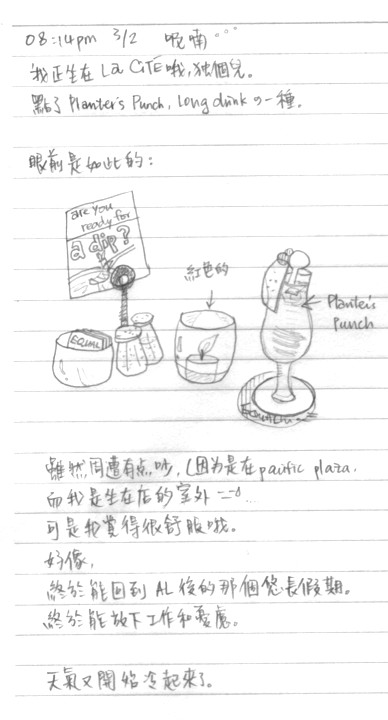 08:14pm 3/2 呢喃...
我正坐在 La CiTÉ 哦,独個兒。
點了 Planter's Punch, Long drink の一種.
眼前是如此的:
are you
ready for
a dip?
紅色的
Planter's
Punch
EQUAL
雖然周遭有点吵,(因为是在 pacific plaza.
而我是坐在店的室外
可是我覺得很舒服哦。
好像,
終於能回到 AL 後的那個悠長假期。
終於能放下工作和憂慮。
天氣又開始冷起來了。